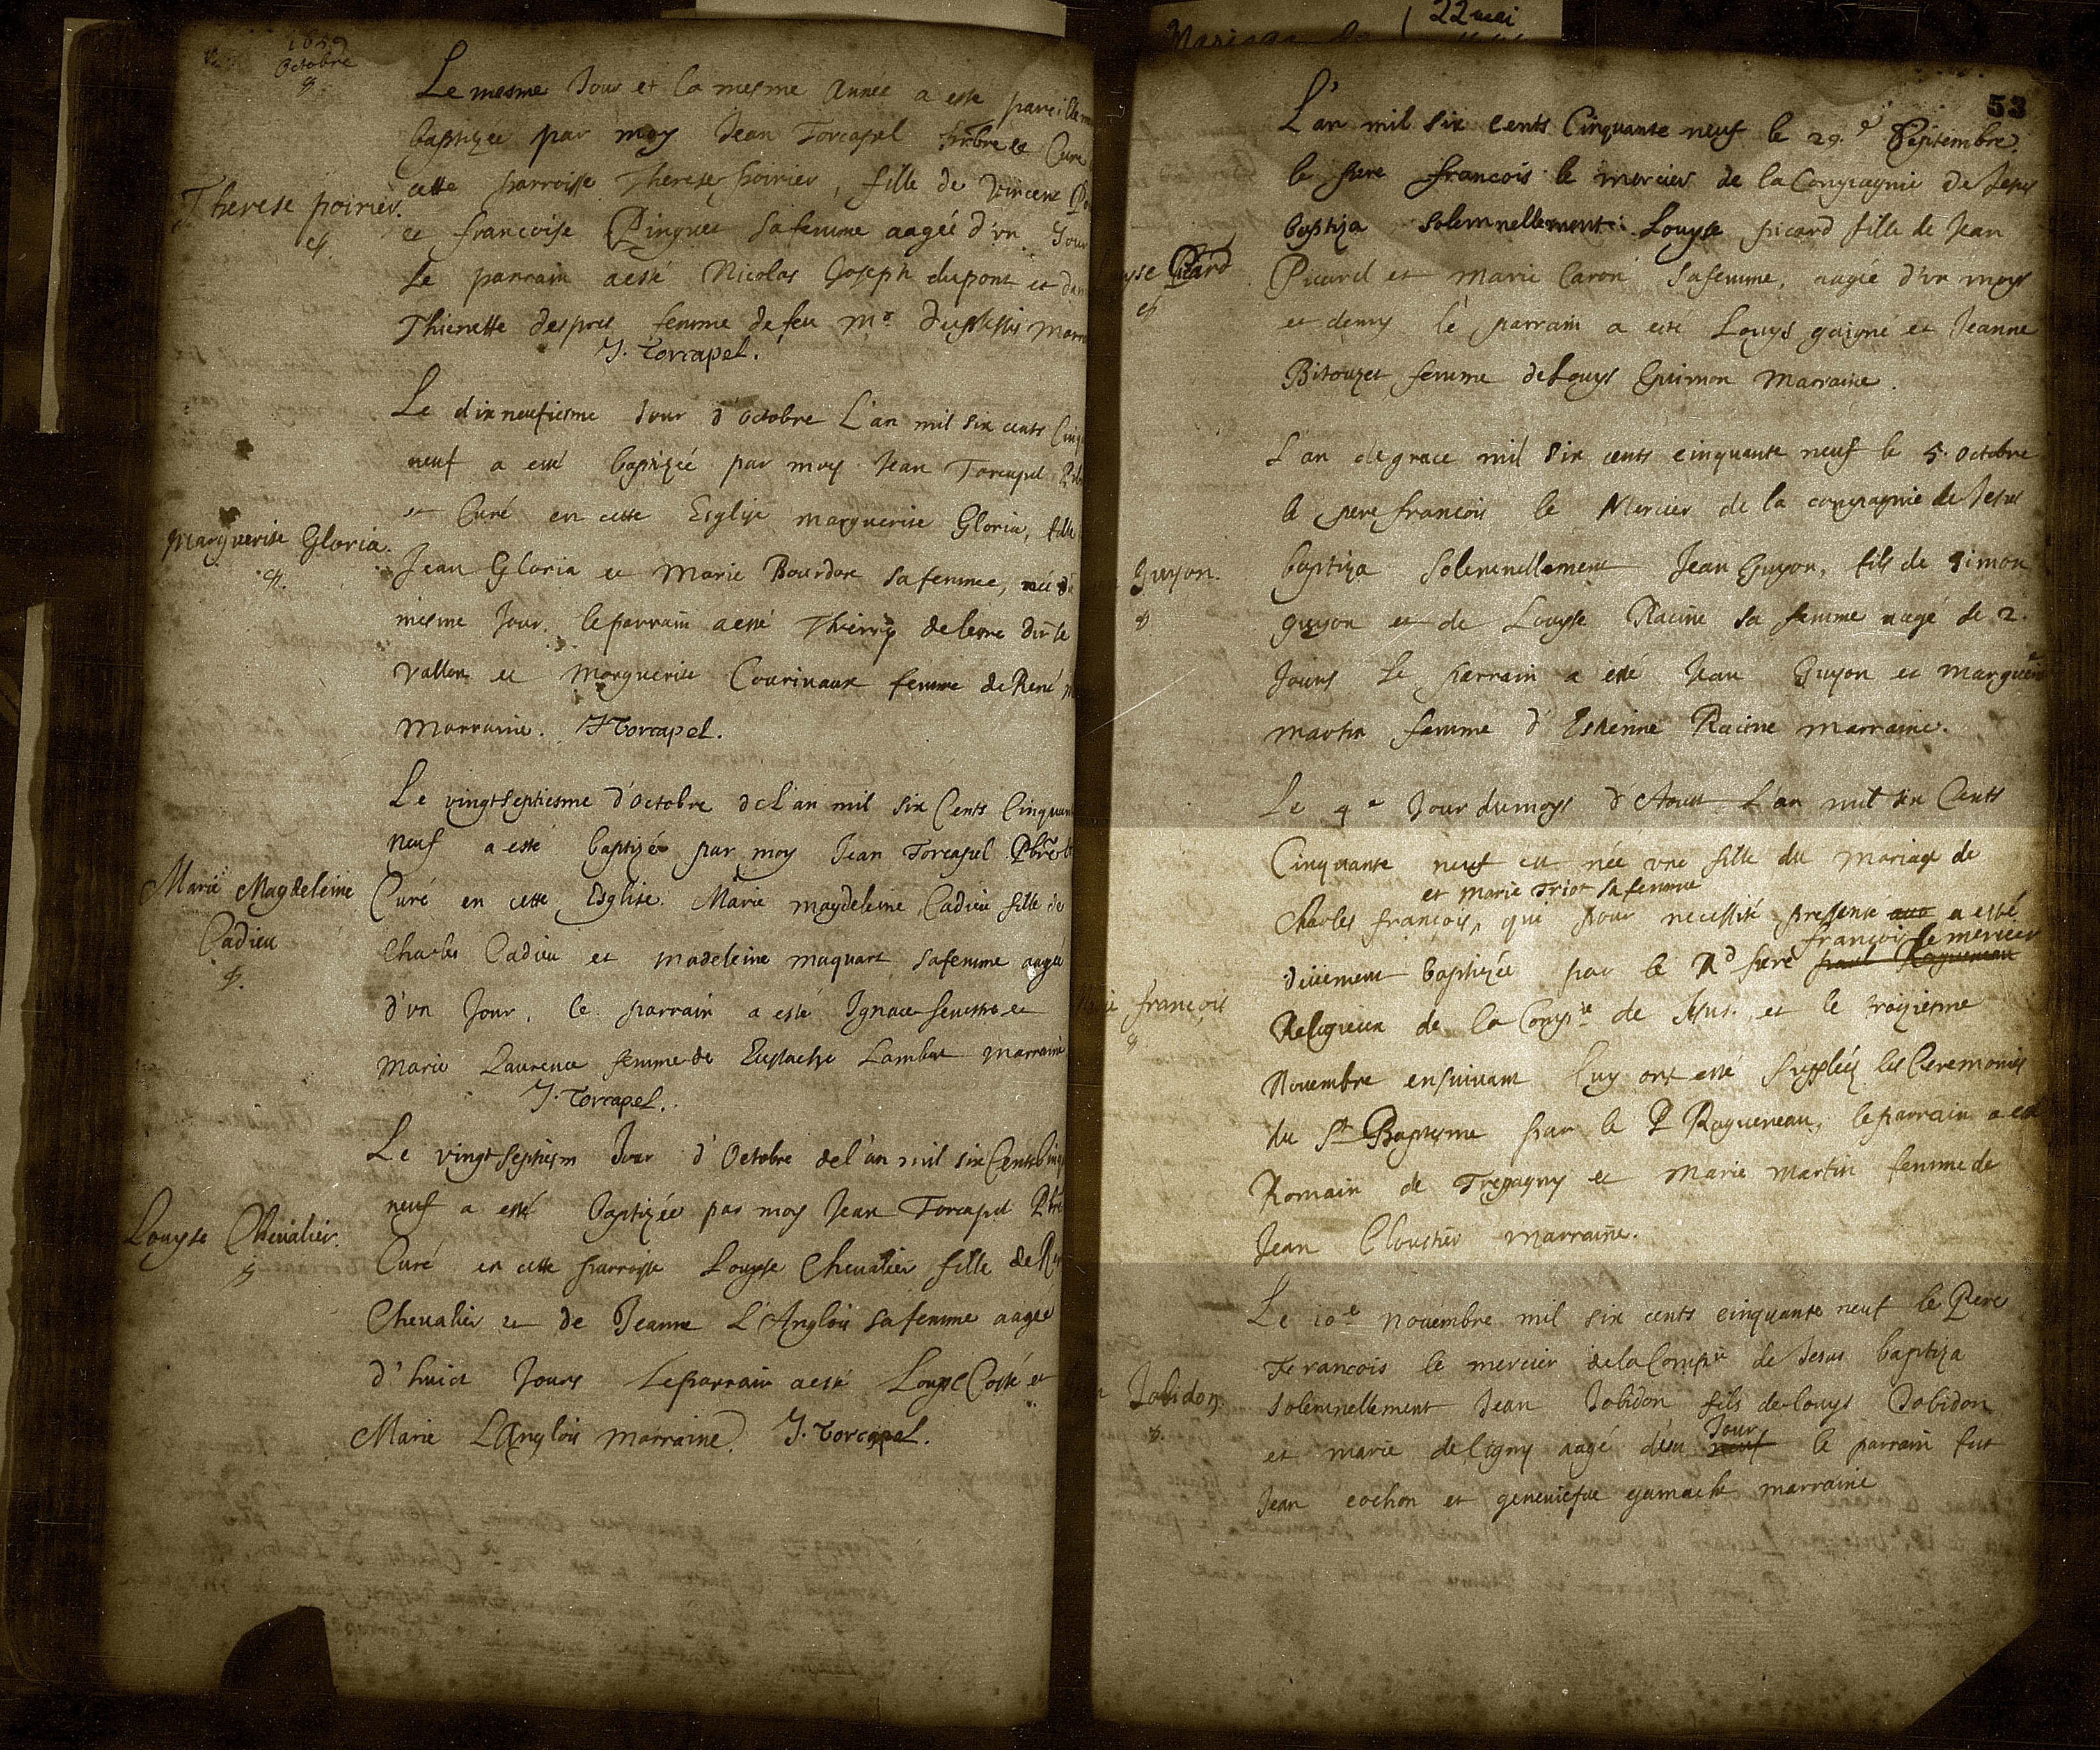 1659
Octobre
Le mesme Jour et la mesme Année a esté pareillem
baptizée par moy Jean Torcapel Prbre et Curé
cette parroisse Therese poirier, fille de Vincent Po
Therese poirier.
et francoise Pinguet sa femme aagée d'vn Jour
Le parrain a esté Nicolas Joseph dupont et da
Thienette despres femme de feu Mr Duplessis marr
J. Torcapel.
Le dixneufiesme Jour d'Octobre L'an mil six cents Cinq
neuf a esté baptizée par moy Jean Torcapel Pb
et Curé en cette Esglise marguerite Gloria, fille
Marguerite Gloria.
Jean Gloria et Marie Bourdon sa femme, née d
mesme Jour. le parrain a esté Thierry delestre dit le
Vallon et Marguerite Courivaux femme de René
Marraine. J Torcapel.
Le vingtseptiesme d'octobre de L'an mil six Cents Cinquan
neuf a esté baptizée par moy Jean Torcapel Pbre
Marie Magdeleine
Cadieu
Curé en cette Esglise. Marie magdeleine Cadieu fille de
Charles Cadieu et madeleine maquart sa femme aagée
d'vn Jour, le parrain a esté Ignace et
Marie Laurence femme de Eustache Lambert marraine
J. Torcapel.
Le vingt septiesm Jour d'Octobre de l'an mil six Cents Cinq
neuf a esté baptizée par moy Jean Torcapel Pbre
Louyse Chevalier.
Curé en cette parroisse Louyse Chevalier fille de Re
Chevalier et de Jeanne L'Anglois sa femme aagée
d'huict Jours Le parrain a esté Louys Costé et
Marie L'Anglois marraine. J. Torcapel.
Mariage de 22 mai
53
L'an mil six cents Cinquante neuf le 29.e Septembre.
le pere francois le mercier de la Compagnie de Jesus
baptiza solemnellement Louyse picard fille de Jean
yse Picard
Picard et Marie Caron sa femme, aagée d'vn moys
et demy le parrain a esté Louys gaigné et Jeanne
Bitouzet femme de Louys Guimon Marraine.
L'an de grace mil six cents cinquante neuf le 5. octobre
le pere francois le Mercier de la compagnie de Jesus
Guyon.
baptiza solemnellement Jean Guyon, fils de Simon
guyon et de Louyse Racine sa femme aagé de 2.
Jours Le parrain a esté Jean Guyon et marguerite
martin femme d'Estienne Racine marraine.
Le 4e Jour du moys d'Aoust L'an mil six Cents
Cinquante neuf est née vne fille du mariage de
et Marie Triot sa femme
Charles françois, qui pour necessité pressente a esté
françois le mercier
deüement baptizée par le Rd pere paul Ragueneau
françois
Religieux de la Compie de Jesus. et le troiziesme
Novembre ensuivant luy ont esté suppléez les Ceremonies
du St Baptesme par le P Ragueneau, le parrain a esté
Romain de Trepagny et Marie Martin femme de
Jean Cloustier marraine.
Le 10e novembre mil six cents cinquante neuf le Pere
Francois le mercier de la Compie de Jesus baptiza
Jobidon.
solemnellement Jean Jobidon fils de louys Jobidon
Jour
et marie deligny aagé d'un neuf le parrain fut
Jean cochon et geneviefue gamache marraine